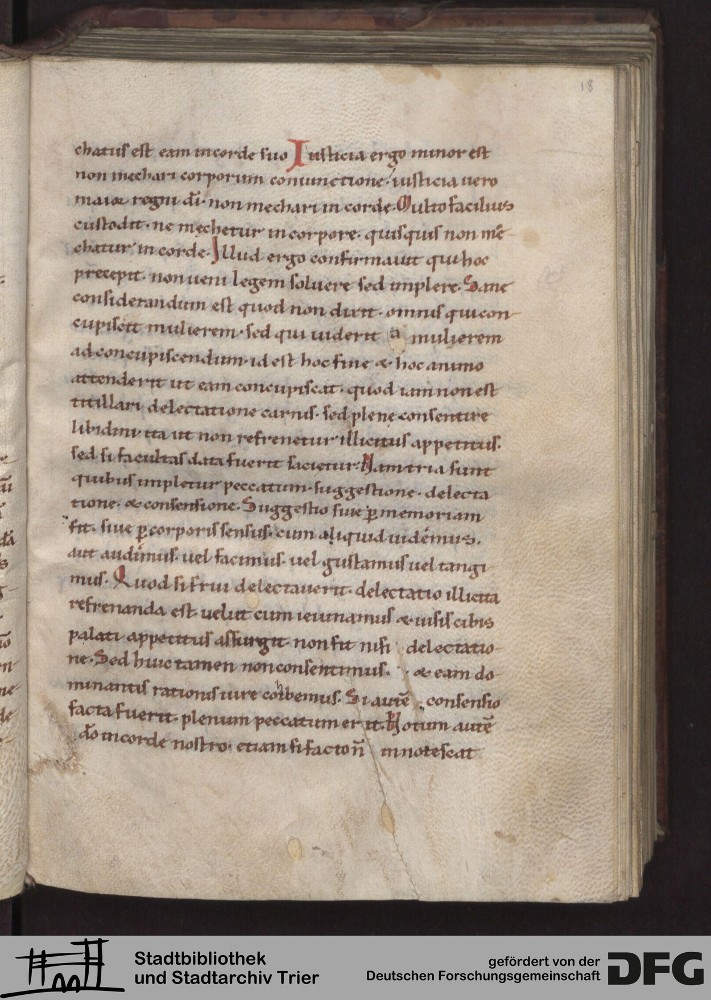 18
chatus est eam in corde suo Iusticia ergo minor est
non mechari corporum coniunctione, iusticia uero
maior regni di̅ non mechari in corde. Multo facilius
custodit. ne męchetur in corpore. quisquis non mę-
chatur in corde. Illud ergo confirmauit qui hoc
precepit. non ueni legem soluere sed implere. Sane
considerandum est quod non dixit. omnis qui con-
cupiscit mulierem. sed qui uiderit mulierem
ad concupiscendum. id est hoc fine & hoc animo
attenderit ut eam concupiscat. quod iam non est
titillari delectatione carnis. sed plene consentire
libidini ita ut non refrenetur illicitus appetitus.
sed si facultas data fuerit sacietur. Nam tria sunt
quibus impletur peccatum. suggestione. delecta
tione. & consensione. Suggestio siue p̲ memoriam
fit. siue p̲ corporis sensus. cum aliquid uidemus.
aut audimus. uel facimus. uel gustamus uel tangi
mus. Quod si frui delectauerit. delectatio illicita
refrenanda est uelut cum ieiunamus & uisis cibis
palati appetitus assurgit. non fit nisi delectatio-
ne. Sed huic tamen non consentimus. & eam do
minantis rationis iure cohibemus. Si aute̅ consensio
facta fuerit. plenum peccatum erit. Notum aute̅
do̅ in corde nostro. etiam si facto n̅ innotescat
Stadtbibliothek
und Stadtarchiv Trier
gefördert von der
Deutschen Forschungsgemeinschaft
DFG